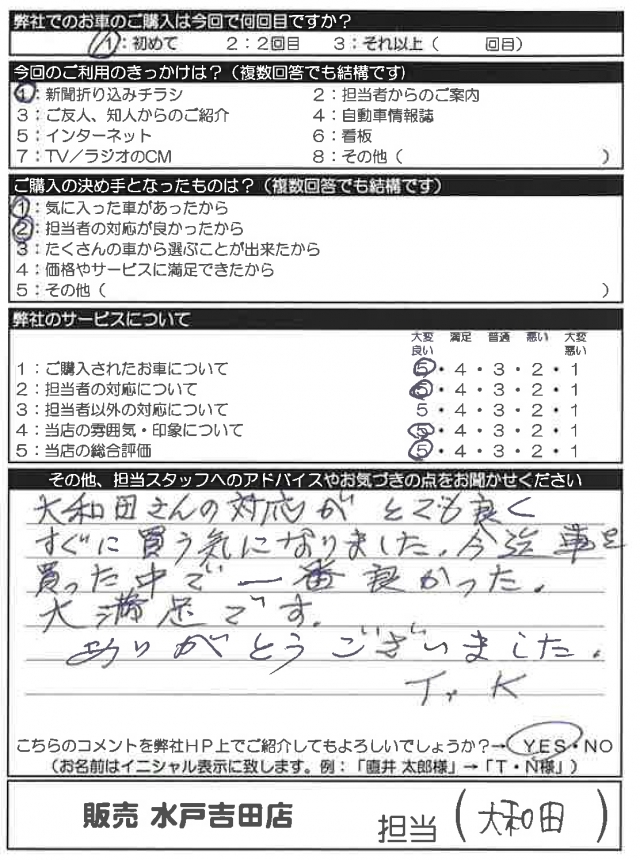 弊社でのお車のご購入は今回で何回目ですか？
1：初めて　2：2回目　3：それ以上（　回目）
今回のご利用のきっかけは？（複数回答でも結構です）
1：新聞折り込みチラシ　2：担当者からのご案内
3：ご友人、知人からのご紹介　4：自動車情報誌
5：インターネット　6：看板
7：TV／ラジオのCM　8：その他（　）
ご購入の決め手となったものは？（複数回答でも結構です）
1：気に入った車があったから
2：担当者の対応が良かったから
3：たくさんの車から選ぶことが出来たから
4：価格やサービスに満足できたから
5：その他（　）
弊社のサービスについて
大変良い　満足　普通　悪い　大変悪い
1：ご購入されたお車について　5・4・3・2・1
2：担当者の対応について　5・4・3・2・1
3：担当者以外の対応について　5・4・3・2・1
4：当店の雰囲気・印象について　5・4・3・2・1
5：当店の総合評価　5・4・3・2・1
その他、担当スタッフへのアドバイスやお気づきの点をお聞かせください
大和田さんの対応がとても良く
すぐに買う気になりました。今迄車を
買った中で一番良かった。
大満足です。
ありがとうございました。
T. K
こちらのコメントを弊社HP上でご紹介してもよろしいでしょうか？→ YES・NO
（お名前はイニシャル表示に致します。例：「直井 太郎様」→「T・N様」）
販売 水戸吉田店　担当（大和田）